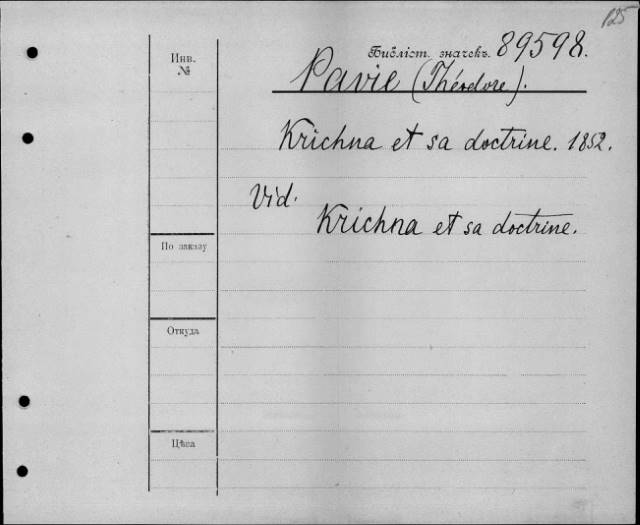 125
Инв.
№
Библіот. значекъ. 89598.
Pavie (Théodore).
Krichna et sa doctrine. 1852.
Vid.
Krichna et sa doctrine.
По заказу
Откуда
Цѣна